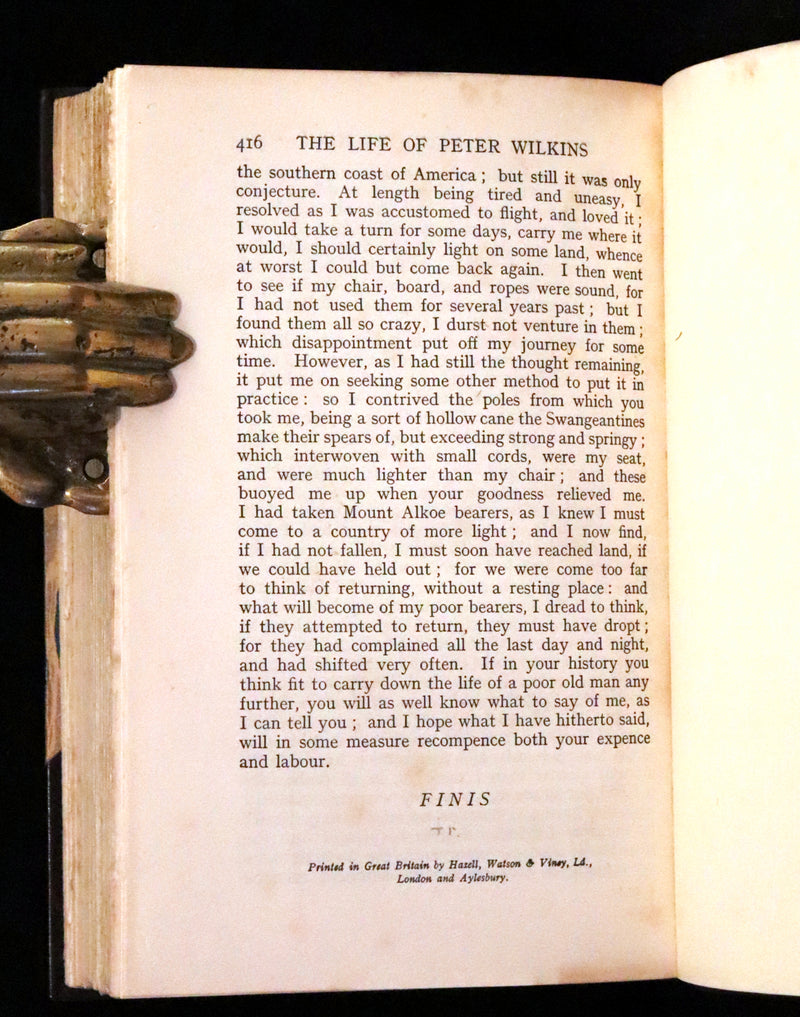 416 THE LIFE OF PETER WILKINS
the southern coast of America ; but still it was only
conjecture. At length being tired and uneasy, I
resolved as I was accustomed to flight, and loved it ;
I would take a turn for some days, carry me where it
would, I should certainly light on some land, whence
at worst I could but come back again. I then went
to see if my chair, board, and ropes were sound, for
I had not used them for several years past ; but I
found them all so crazy, I durst not venture in them ;
which disappointment put off my journey for some
time. However, as I had still the thought remaining,
it put me on seeking some other method to put it in
practice : so I contrived the poles from which you
took me, being a sort of hollow cane the Swangeantines
make their spears of, but exceeding strong and springy ;
which interwoven with small cords, were my seat,
and were much lighter than my chair ; and these
buoyed me up when your goodness relieved me.
I had taken Mount Alkoe bearers, as I knew I must
come to a country of more light ; and I now find,
if I had not fallen, I must soon have reached land, if
we could have held out ; for we were come too far
to think of returning, without a resting place : and
what will become of my poor bearers, I dread to think,
if they attempted to return, they must have dropt ;
for they had complained all the last day and night,
and had shifted very often. If in your history you
think fit to carry down the life of a poor old man any
further, you will as well know what to say of me, as
I can tell you ; and I hope what I have hitherto said,
will in some measure recompence both your expence
and labour.
FINIS
Printed in Great Britain by Hazell, Watson & Viney, Ld.,
London and Aylesbury.